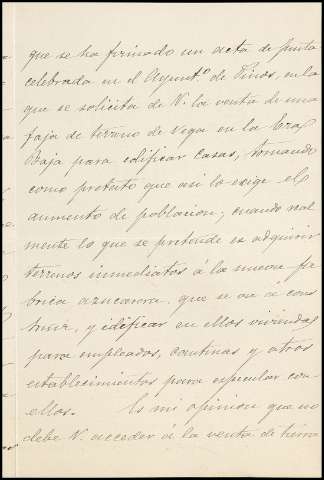 que se ha firmado un acta de junta
celebrada en el Ayunt.º de Pinos, en la
que se solicita de V. la venta de una
faja de terreno de Vega en la Era
Baja para edificar casas, tomando
como pretesto que asi lo exige el
aumento de poblacion; cuando real
mente lo que se pretende es adquirir
terrenos inmediatos á la nueva fa
brica azucarera, que se va á cons
truir, y edificar en ellos viviendas
para empleados, cantinas y otros
establecimientos para especular con
ellos. Es mi opinion que no
debe V. acceder á la venta de tierra